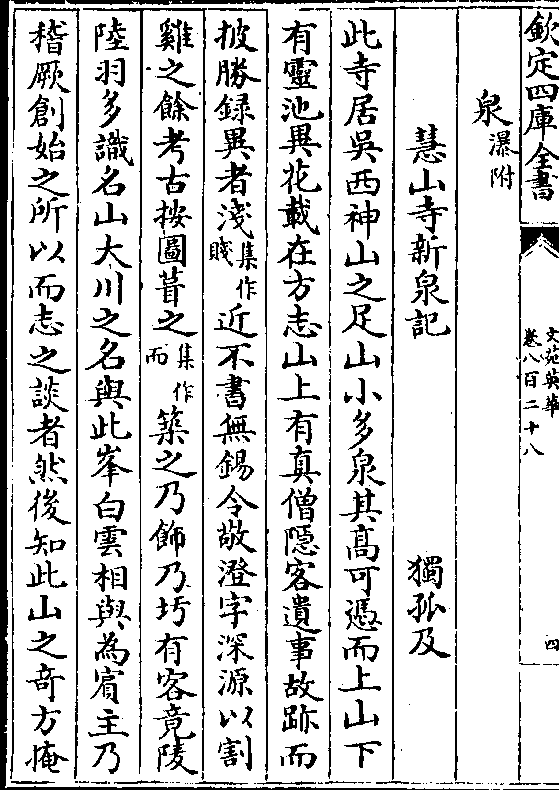 欽定四庫全書
文苑英華
卷八百二十八
四
泉瀑附
慧山寺新泉記　獨孤及
此寺居吳西神山之足山小多泉其高可憑而上山下
有靈池異花載在方志山上有真僧隱客遺事故跡而
披勝録異者淺集作賤近不書無錫令敬澄字深源以割
雞之餘考古按圖葺之集作而築之乃飾乃圬有客竟陵
陸羽多識名山大川之名與此峯白雲相與為賔主乃
稽厥創始之所以而志之談者然後知此山之奇方掩